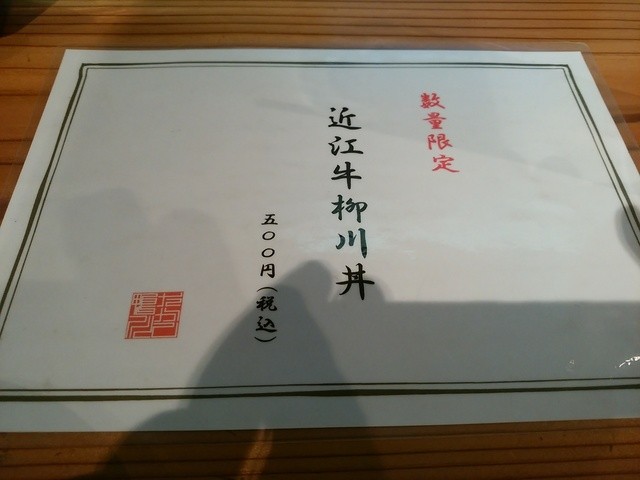 数量限定
近江牛柳川丼
五〇〇円(税込)